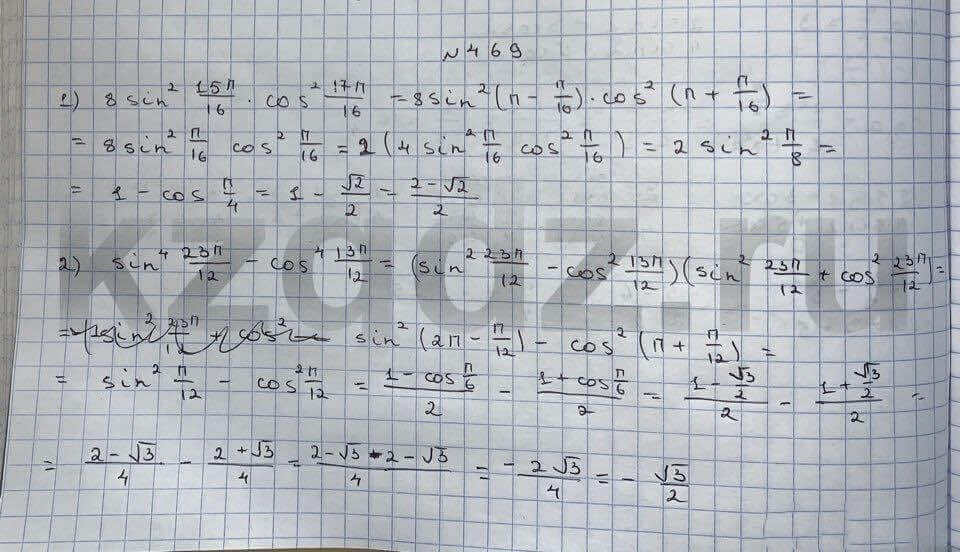 № 469
1) 8 sin² 15π/16 · cos² 17π/16 = 8 sin² (π − π/16) · cos² (π + π/16) =
= 8 sin² π/16 cos² π/16 = 2 (4 sin² π/16 cos² π/16) = 2 sin² π/8 =
= 1 − cos π/4 = 1 − √2/2 = (2 − √2)/2
2) sin⁴ 23π/12 − cos⁴ 13π/12 = (sin² 23π/12 − cos² 13π/12)(sin² 23π/12 + cos² 23π/12) =
= sin² (2π − π/12) − cos² (π + π/12) =
= sin² π/12 − cos² π/12 = (1 − cos π/6)/2 − (1 + cos π/6)/2 = (1 − √3/2)/2 − (1 + √3/2)/2 =
= (2 − √3)/4 − (2 + √3)/4 = (2 − √3 − 2 − √3)/4 = − 2√3/4 = − √3/2
kzgdz.ru